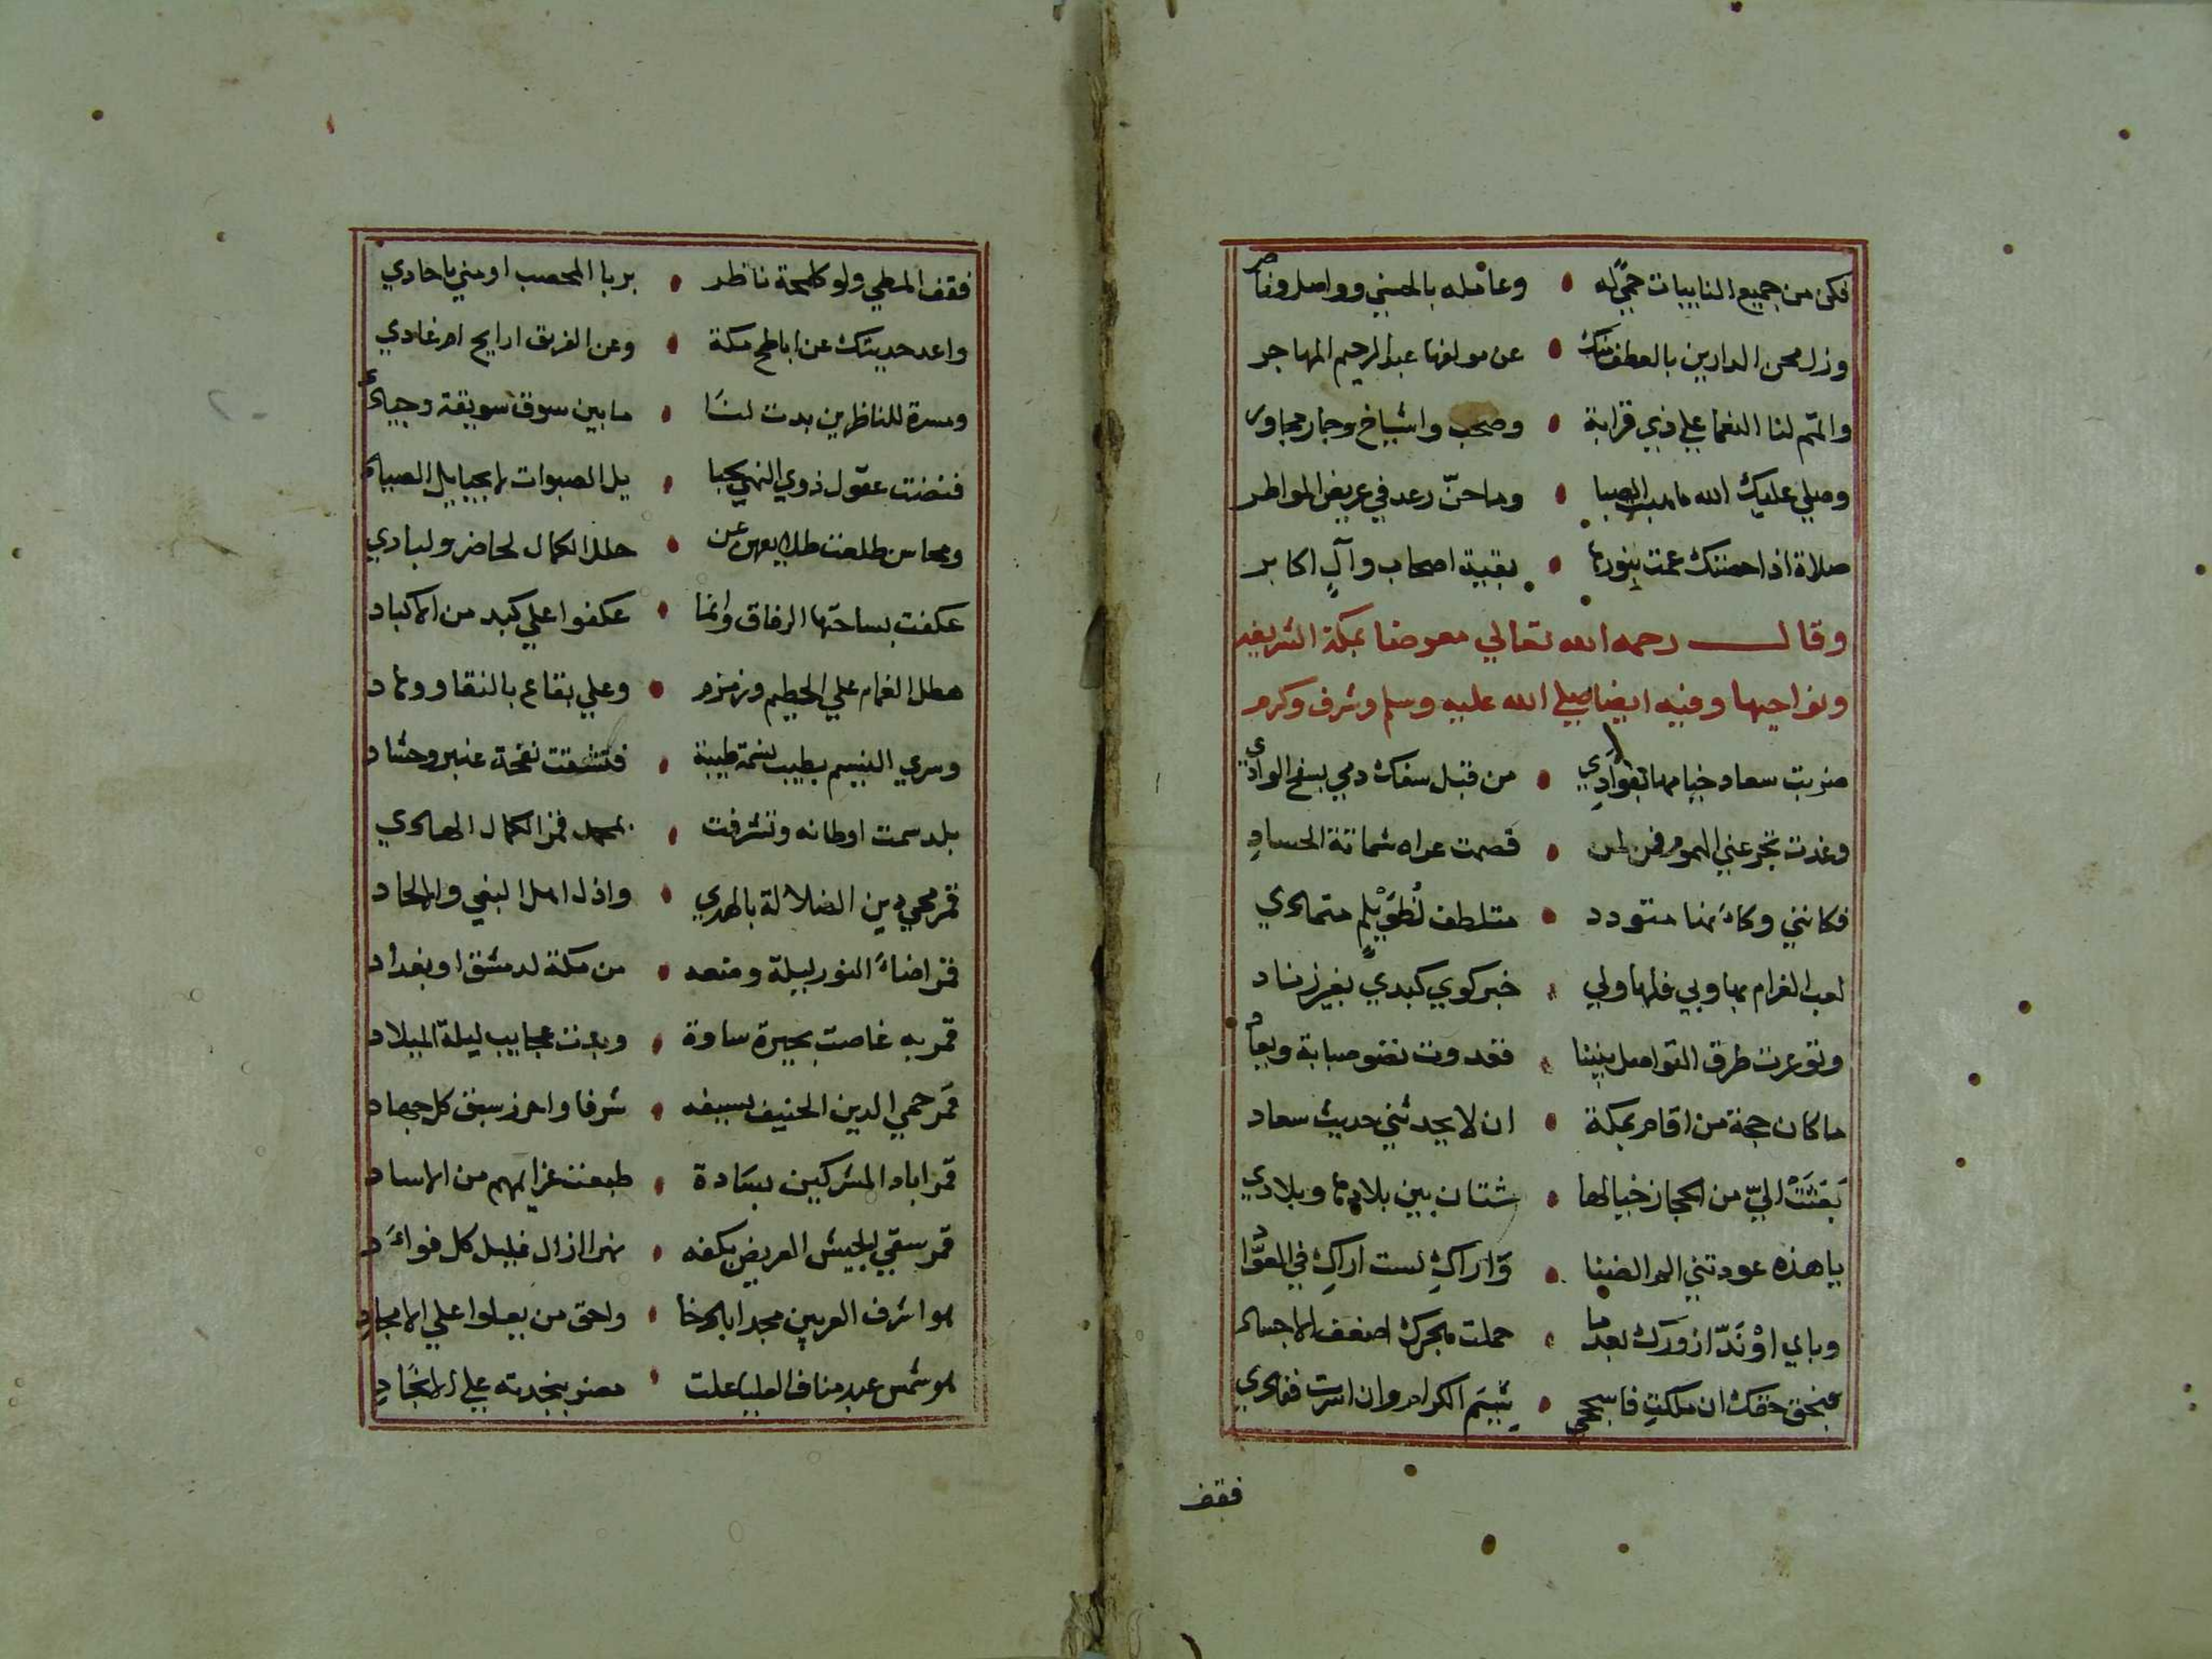 فكن من جميع النايبات حمى له • وعامله بالحسني وواصل وناصر
وزل محن الدارين بالعطف منك • عن مولفها عبد الرحيم المهاجر
والتم لنا النعما علي ذي قرابة • وصحب واشياخ وجار مجاور
وصلي عليك الله ما هبت الصبا • وما حنّ رعد في عريض المواطر
صلاة اذا خصتك عمت بنورها • بقية اصحاب وآلٍ اكابر
وقال رحمه الله تعالي معرضا بمكة الشريفه
ونواحيها وفيه ايضا صلي الله عليه وسلم وشرف وكرم
ضربت سعاد خيامها بفوادي • من قبل سفك دمي بسفح الوادي
وغدت تجرعني الهموم فمن لمن • قصمت عراه شماتة الحسادِ
فكانني وكانما متودد • متلطف متمادي
لعب الغرام بها وبي فلها ولي • خبر كوي كبدي بغير زناد
وتوعرت طرق التواصل بيننا • فغدوت نضو صبابة وبعاد
ما كان حجة من اقام بمكة • ان لا يحدثني حديث سعاد
بَعَثَتْ اليّ من الحجاز خيالها • شتان بين بلادها وبلادي
يا هذه عودتني الم الضنا • وَاراكِ لست اراكِ في العوّاد
وباي ازورك بعدما • حملت هجرك اضعف الاجساد
فبحق حقك ان ملكتِ فاسجحي • شيَم الكرام وان اسرت ففادي
فقف
فقف المطي ولو كلمحة ناظر • بربا المحصب او مني يا حادي
واعد حديثك عن اباطح مكة • وعن الفريق ارايح ام غادي
ومسرة للناظرين بدت لنَا • ما بين سوق سويقة وجياد
فنضت عقول ذوي النهي بحبا • يل الصبوات لا بحبايل الصياد
ومحاسن طلعت طلايعهن عن • حلل الكمال لحاضر ولبادي
عكفت بساحتها الرفاق وانما • عكفوا علي كبد من الاكباد
هطل الغمام علي الحطيم وزمزم • وعلي بقاع بالنقا ووهاد
وسري النسيم بطيب نسمة طيبة • فتنشقت نفحة عنبر وحشاد
بلد سمت اوطانه وتشرفت • بمحمد قمر الكمال الهادي
قمر محي دين الضلالة بالهدي • واذل اهل البغي والالحاد
قمر اضاءَ النور ليلة وضعه • من مكة لدمشق او بغداد
قمر به غاضت بحيرة ساوة • وبدت عجايب ليلة الميلاد
قمَر حمي الدين الحنيف بسيفه • شرفا واحرز سبق كل جهاد
قمر اباد المشركين بسَادة • طبعت عزايمهم من الاساد
قمر سقي الجيش العريض بكفه • نهرا ازال غليل كل فواد
هو اشرف العربين مجدا باذخا • واحق من يعلوا علي الامجاد
هو شمس عبد مناف العليا علت • مضر بنجدته علي الانجَاد